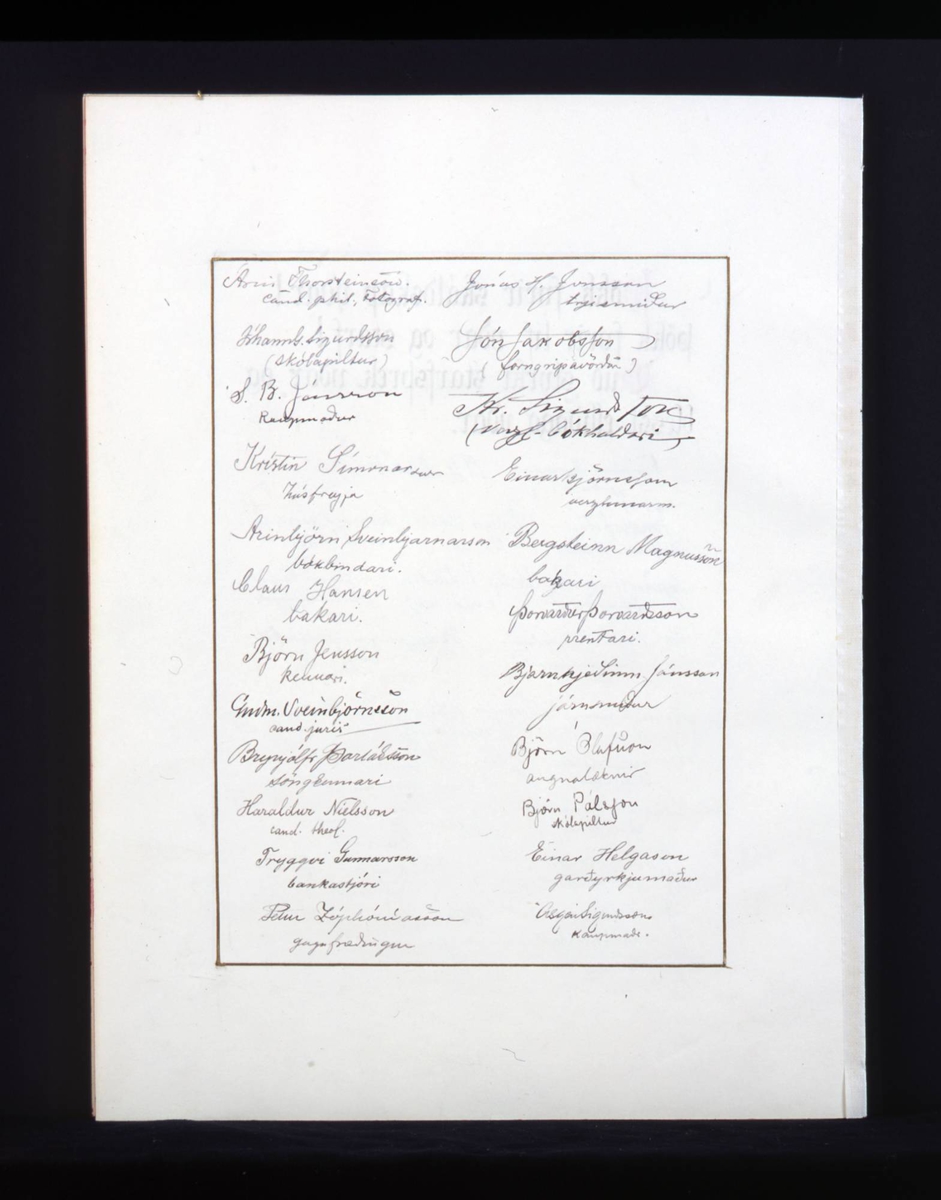 Árni Thorsteinson.
cand. phil. Fotograf.
Jóhann Sigurdsson
(skólapiltur)
S. B. Jónsson
Kaupmaður
Kristín Símonar
húsfreyja
Arinbjörn Sveinbjarnarson
bókbindari.
Claus Hansen
bakari.
Björn Jensson
kennari.
Guðm. Sveinbjörnsson
cand. juris
Brynjólfr Þorláksson
söngkennari
Haraldur Níelsson
cand. theol.
Tryggvi Gunnarsson
bankastjóri
Petur Zóphóníasson
gagnfræðingur
Jónas H. Jónsson
trjesmiður
Jón Jakobsson
(forngripavörður)
Kr. Sigurdsson
(verzl. bókhaldari)
Einar Björnsson
verzlunarm.
Bergsteinn Magnússon
bakari
Þorvarður Þorvarðsson
prentari.
Bjarnhjeðinn Jónsson
járnsmiður
Björn Ólafsson
augnalæknir
Björn Pálsson
skólapiltur
Einar Helgason
garðyrkjumaður
Ásgeir Sigurdsson
kaupmaðr.